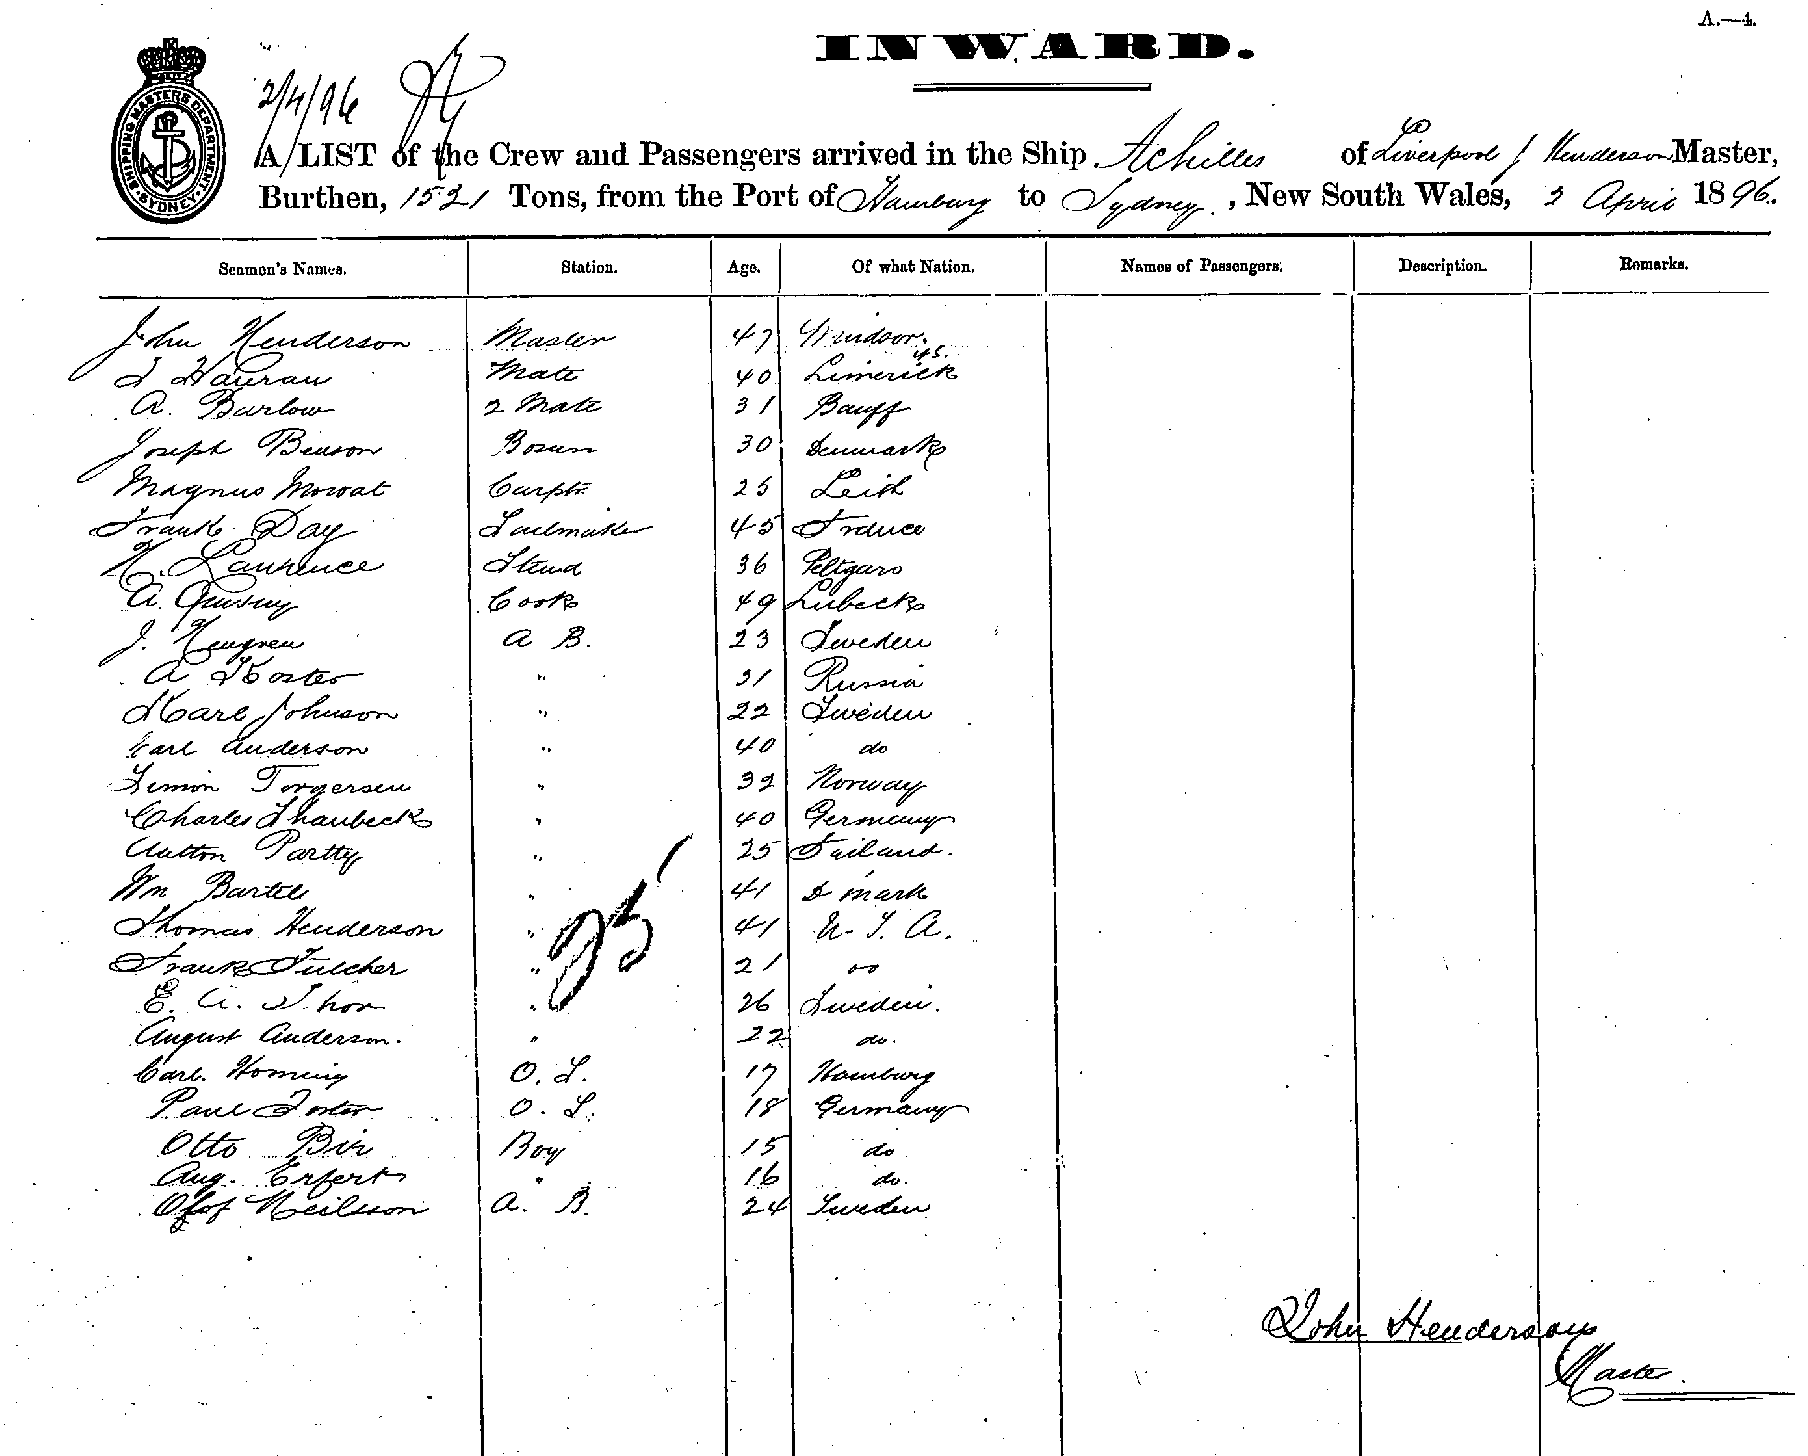 A.—4.
INWARD.
2/4/96
SHIPPING MASTERS DEPARTMENT SYDNEY
A LIST of the Crew and Passengers arrived in the Ship Achilles of Liverpool J Henderson Master,
Burthen, 1521 Tons, from the Port of Hamburg to Sydney, New South Wales, 2 April 1896.
Seamen's Names. Station. Age. Of what Nation. Names of Passengers. Description. Remarks.
John Henderson Master 47 Windsor. NS.
Mate 40 Limerick
A. Barlow 2 Mate 31 Banff
Joseph Benson Bosun 30 Denmark
Magnus Mowat Carptr 25 Leith
Frank Day Sailmaker 45
H. Laurence Stewd 36
A. Cook 49 Lubeck
J. A B. 23 Sweden
A Koster " 31 Russia
Karl Johnson " 22 Sweden
Carl Anderson " 40 do
Simon Torgersen " 32 Norway
Charles " 40 Germany
" 25
Wm Bartels " 41 D mark
Thomas Henderson " 41 U. S. A.
Frank Fulcher " 21 do
E. A. Thor " 26 Sweden.
August Anderson. " 22 do.
Carl O. S. 17 Hamburg
Paul O. S. 18 Germany
Otto Boy 15 do
Aug. Erfert " 16 do.
Olof Neilson A. B. 24 Sweden
25
John Henderson
Master.